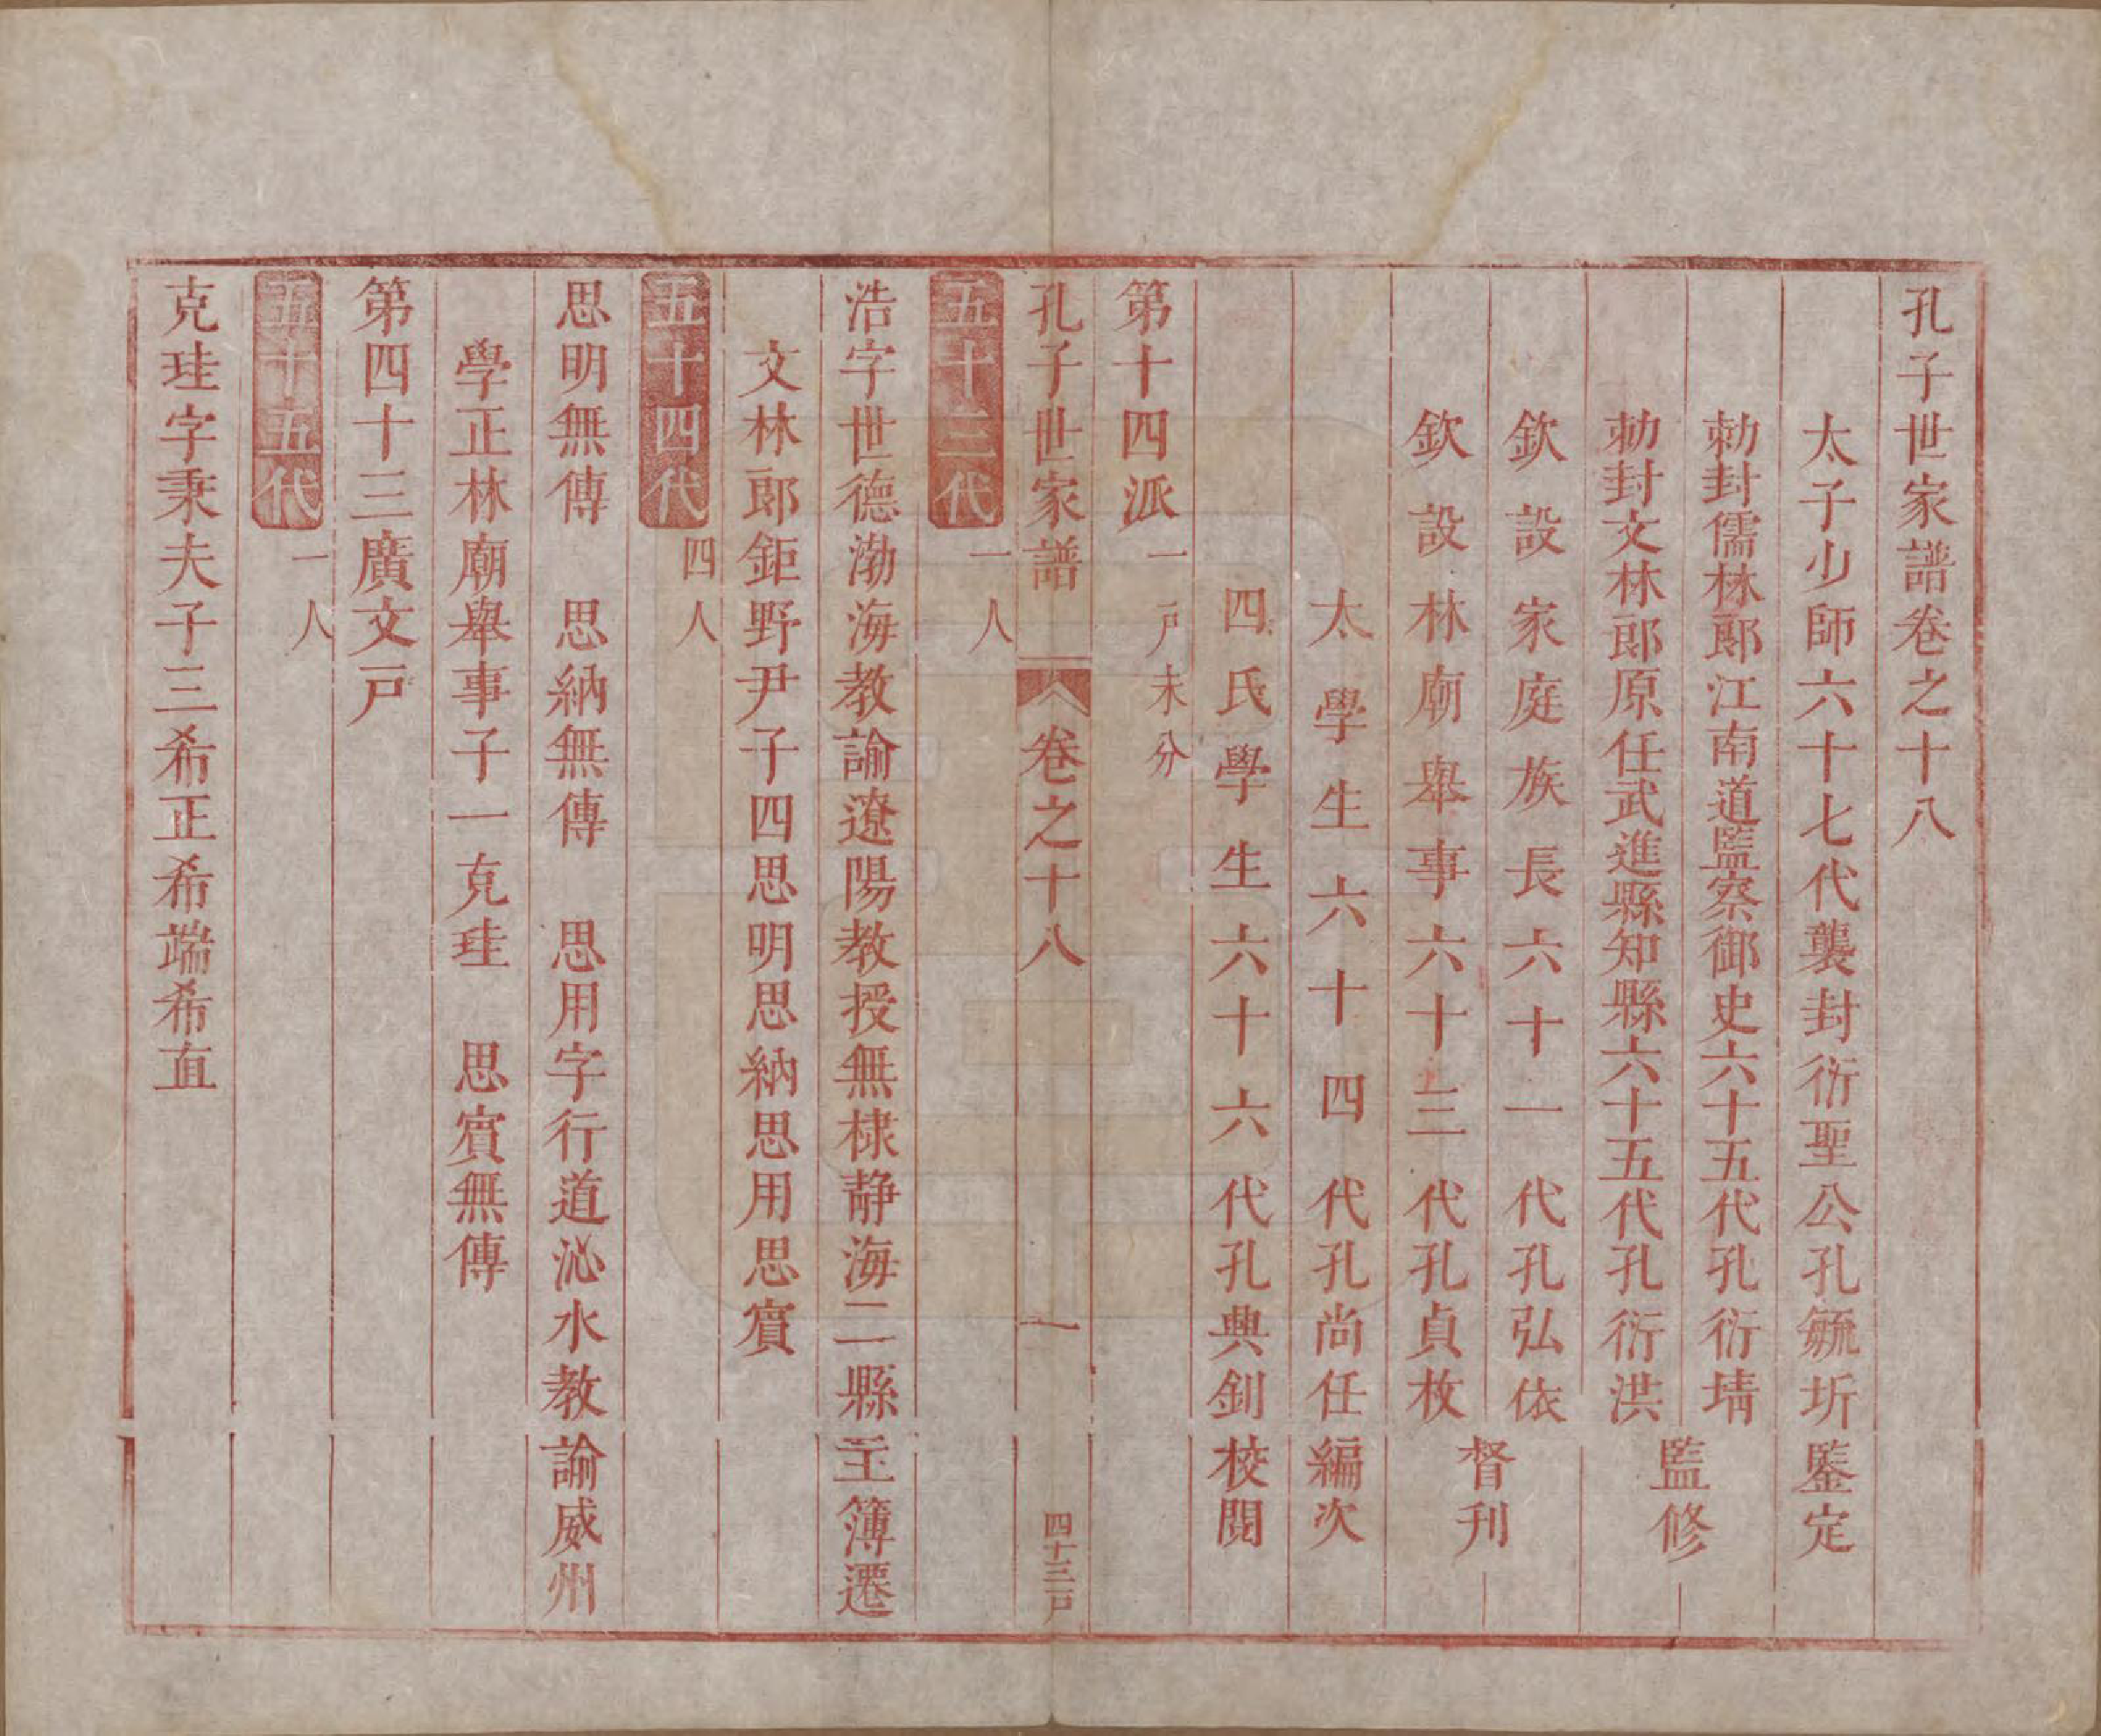 孔子世家譜卷之十八
太子少師六十七代襲封衍聖公孔毓圻鑒定
勅封儒林郎江南道監察御史六十五代孔衍堉
勅封文林郎原任武進縣知縣六十五代孔衍洪
監修
欽設家庭族長六十一代孔弘依
欽設林廟舉事六十三代孔貞枚
督刊
太學生六十四代孔尚任編次
四氏學生六十六代孔興釗校閱
第十四派一戶未分
孔子世家譜 卷之十八 一 四十三戶
五十三代一人
浩字世德渤海教諭遼陽教授無棣靜海二縣主簿遷
文林郎鉅野尹子四思明思納思用思實
五十四代四人
思明無傳 思納無傳 思用字行道沁水教諭威州
學正林廟舉事子一克珪 思實無傳
第四十三廣文戶
五十五代一人
克珪字秉夫子三希正希端希直